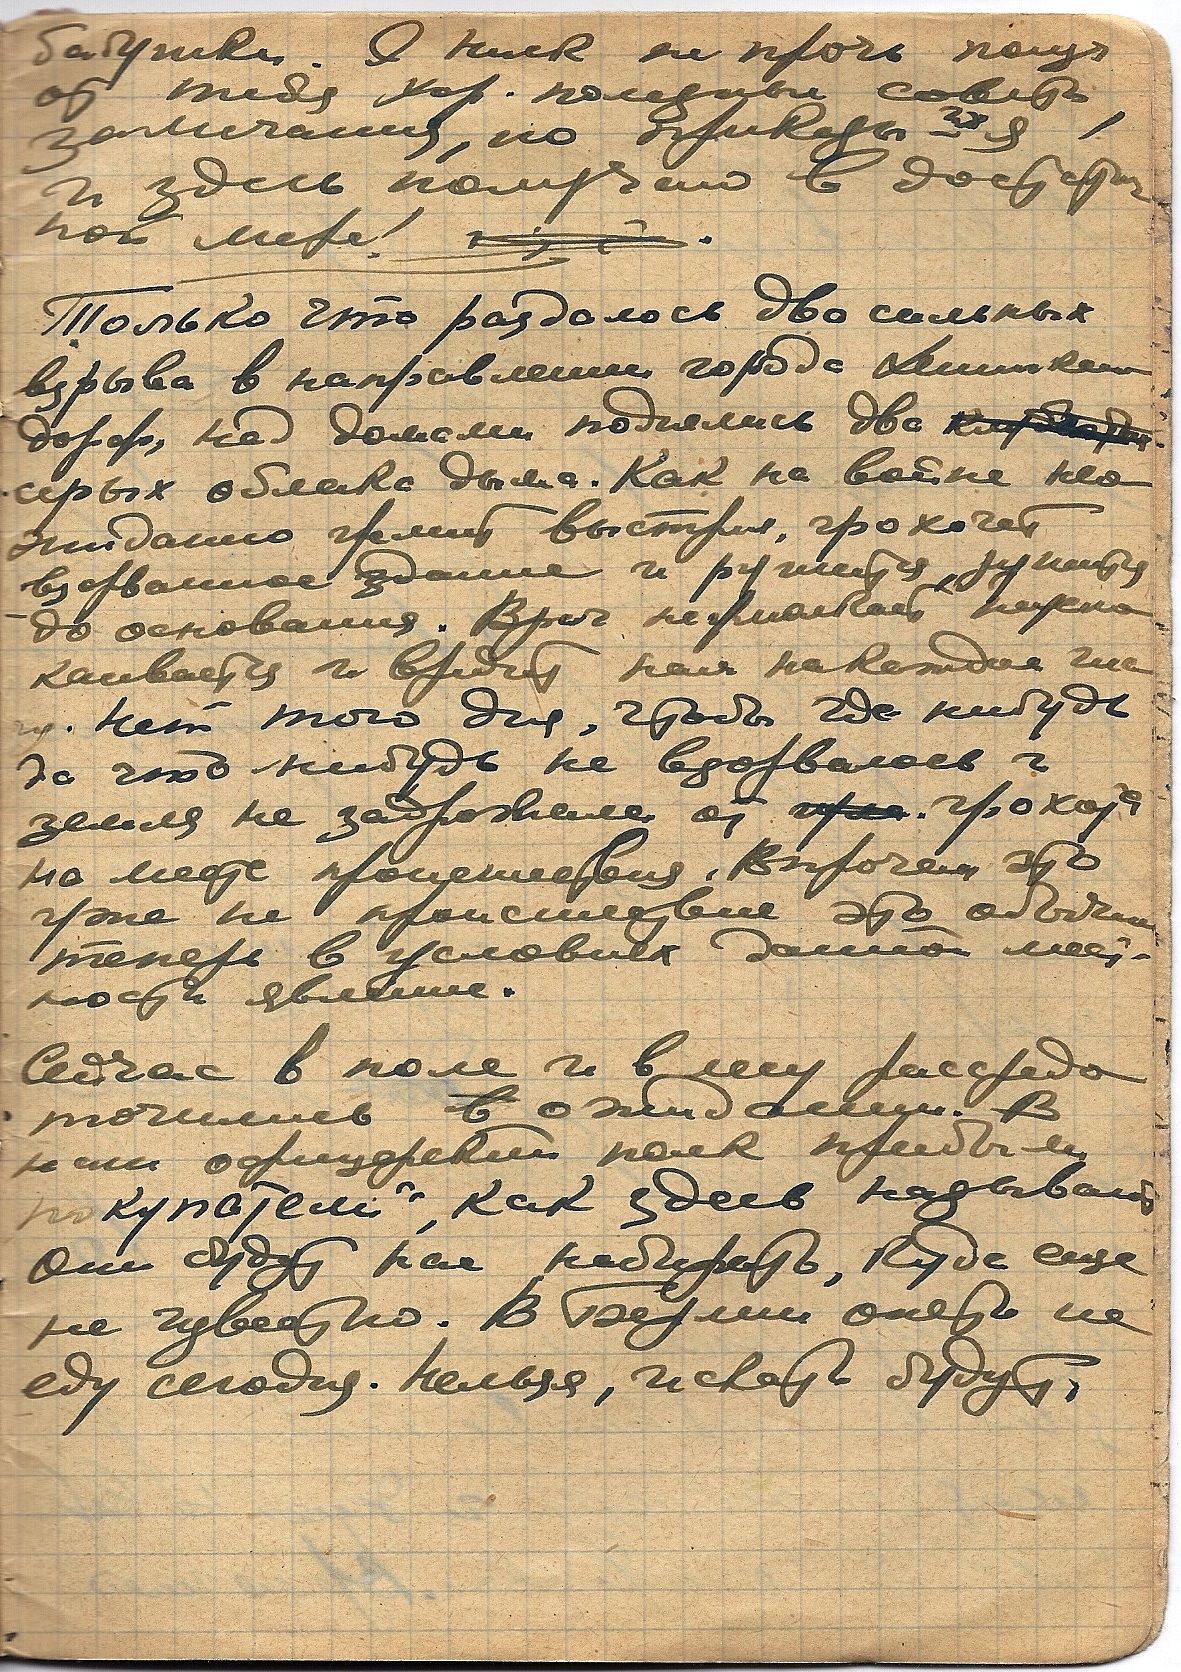 бабушки. Я никак не прочь получ
от тебя хор. полезные советы
замечания, но приказы их я
и здесь получаю в достаточ
ной мере!
Только что раздалось два сильных
взрыва в направлении города
дорф, над домами поднялись два
серых облака дыма. Как на войне нео
жиданно гремит выстрел, грохочет
взорванное здание и рушится, рушится
до основания. Враг не
и вредит нам на каждом ша
гу. Нет того дня, чтобы где нибудь
да что нибудь не взорвалось и
земля не задрожала от грохота
на месте происшествия. Впрочем это
уже не происшествие это обычное
теперь в условиях данной мест-
ности явление.
Сейчас в поле и в лесу рассредо
точились в ожидании. В
наш офицерский полк прибыли
покупатели", как здесь называют
Они будут нас набирать, куда еще
не известно. В Берлин опять не
еду сегодня. Нельзя, искать будут,